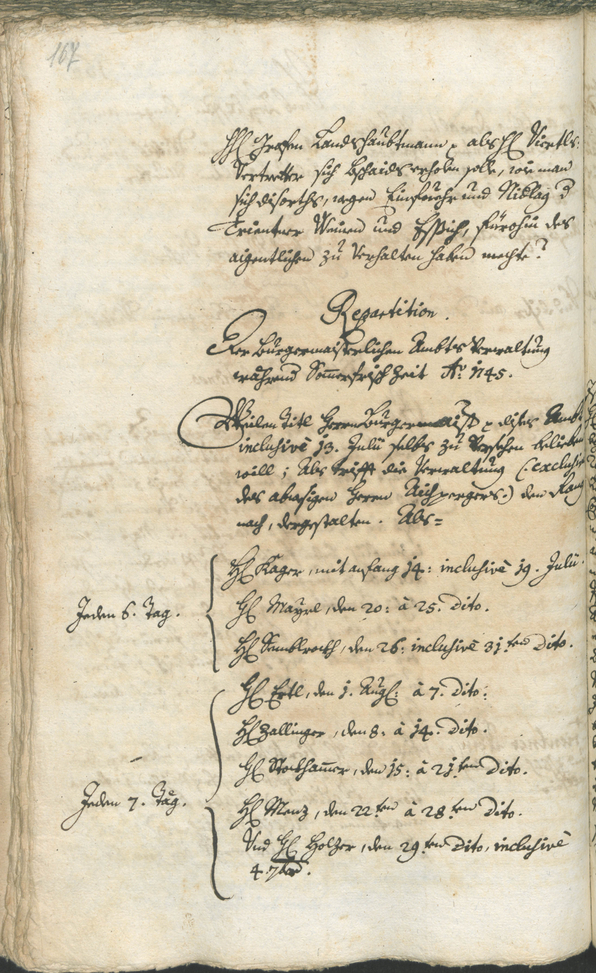 167
H: Grafen Landtshaubtmann p: als H: Viertls-
Vertretter sich beschaids erholen solle, wie man
sich diserths, wegen Einfuehr und Niderlag der
Trientner Weinen und Essich, fürohin des
aigentlichen zu verhalten haben mechte?
Repartition.
Der Burgermaisterlichen Ambts Verwaltung
während Sommerfrisch Zeit Aō: 1745.
Weilen Titl Herr Burgermaister p dises Ambt
inclusivè 13. Julii selbs zu versehen belieben
will; Als trifft die Verwaltung (: exclusivè
des abwesigen Herrn Aichpergers:) den Rang
nach, dergestalten. Als=
H: Kager, mit anfang 14: inclusivè 19. Julii.
Jeden 6. Tag.
H: Mayrl, den 20: à 25. dito.
H: Semblrockh, den 26: inclusivè 31.ten dito.
H: Ertl, den 1. Aug: à 7. dito.
H: Zallinger, den 8. à 14. dito.
H: Stockhamer, den 15: à 21.ten dito.
Jeden 7. Tag.
H: Menz, den 22.ten à 28.ten dito.
Und H: Holzer, den 29.ten dito, inclusivè
4. 7ber.